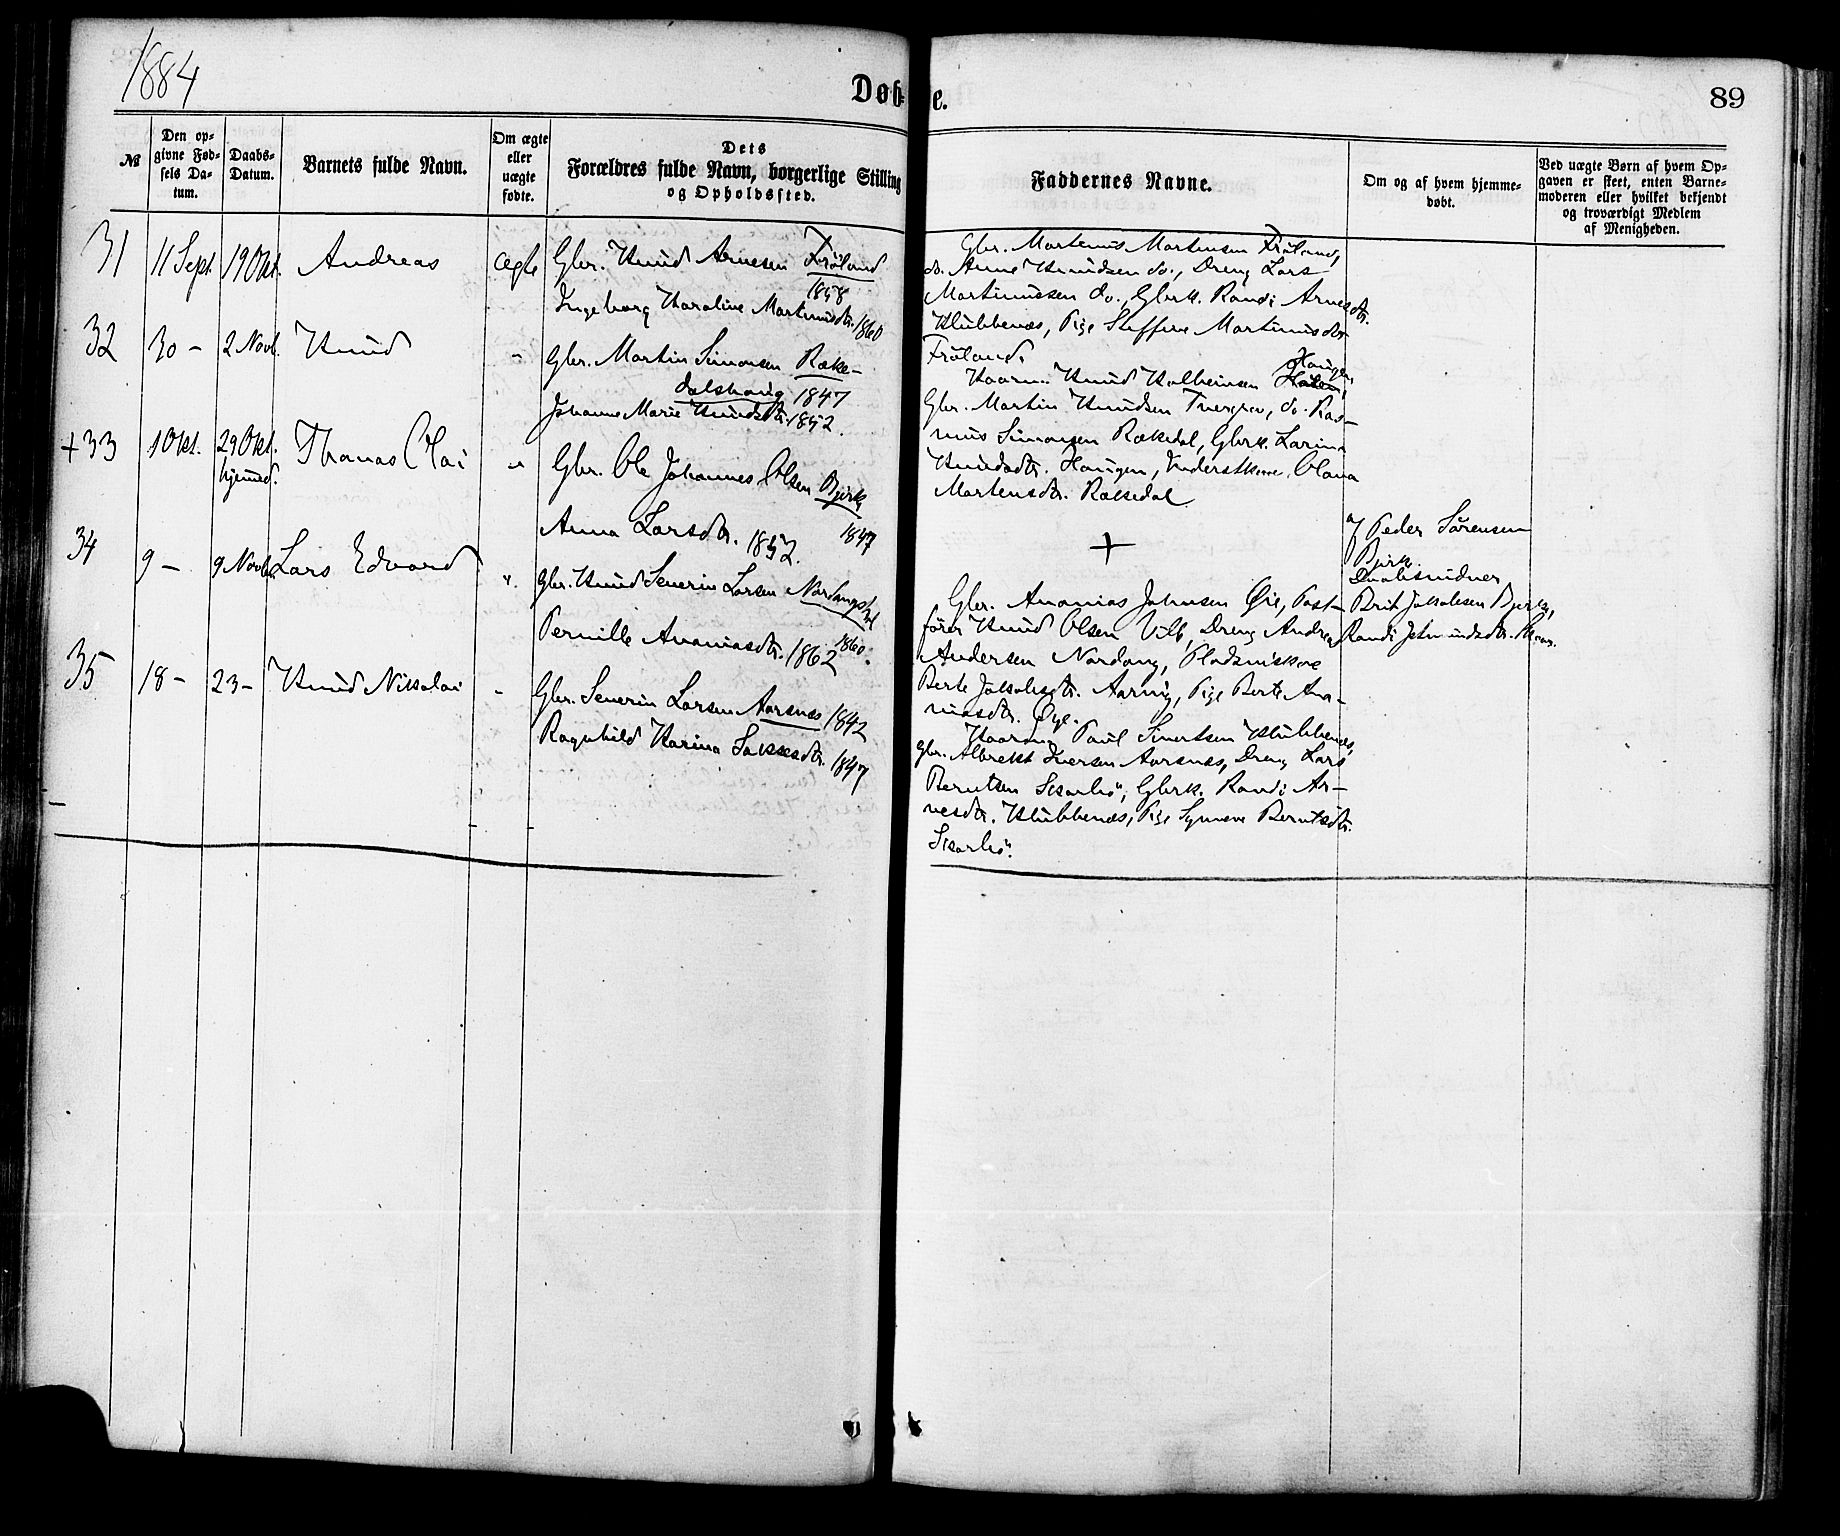 1884
Døb-
e.
89
№
Den op-
givne Fød-
sels Da-
tum.
Daabs-
Datum.
Barnets fulde Navn.
Om ægte
eller
uægte
fødte.
Dets
Forældres fulde Navn, borgerlige Stilling
og Opholdssted.
Faddernes Navne.
Om og af hvem hjemme-
døbt.
Ved uægte Børn af hvem Op-
gaven er skeet, enten Barne-
moderen eller hvilket bekjendt
og troværdigt Medlem
af Menigheden.
31
11 Sept.
19 Okt.
Andreas
ægte
Gbr. Knud Arnesen Frøland
1858
Ingeborg Karoline Martinusdtr. 1860
Gbr. Martinus Martinsen Frøland,
do. Anne Knudsen do., Dreng Lars
Martinussen do., Gbrk. Randi Arnesdtr.
Klubbenæs, Pige Steffine Martinusdtr.
Frøland.
32
30 -
2 Novb.
Knud
"
Gbr. Martin Simonsen Række-
dalshaug 1847
Johanne Marie Knudsdtr. 1852.
Knud Haugen,
Gbr. Martin Knudsen Tvergrov, do. Ras-
mus Simonsen Rækedal, Gbrk. Larina
Knudsdtr. Haugen, Olava
Martensdtr. Rækedal.
+33
1 Okt.
29 Okt.
hjemmed.
Thomas Olai
"
Gbr. Ole Johannes Olsen Bjørk
1847
Anna Larsdtr. 1852.
+
af Peder Sørensen
Bjørk.
Daabsvidner
Brit Jakobsen Bjørk,
Randi
34
9 -
9 Novb.
Lars Edvard
"
Gbr. Knud Severin Larsen
1860.
Pernille Ananiasdtr. 1862
Gbr. Ananias Johnsen Øie, Post-
fører Knud Olsen Vilb, Dreng Andreas
Andersen Nordang, Pladsmiskone
Berte Jakobsdtr. Aarvig, Pige Berte Ana-
niasdtr. Øye.
35
18 -
23 -
Knud Nikolai
"
Gbr. Severin Larsen Aarsnæs 1842
Ragnhild Karina dtr. 1847
Paul Sivertsen Klubbenæs,
Gbr. Albrekt Iversen Aarsnæs, Dreng Lars
Berntsen Skarbø, Gbrk. Randi Ar-
nesdtr. Klubbenæs, Pige Synneve Berntsdtr.
Skarbø.